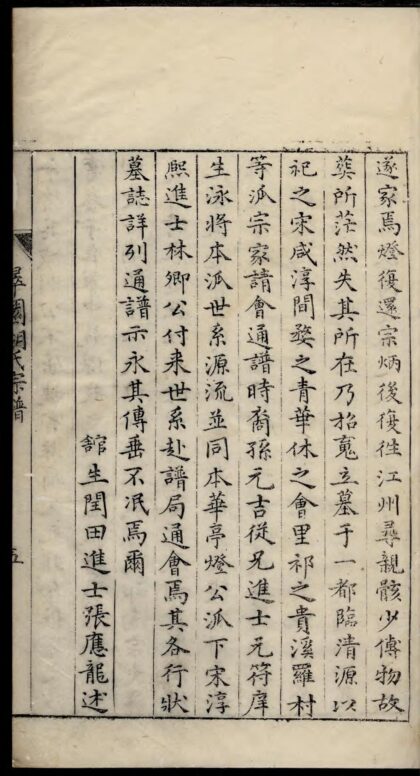 遂家焉燈復還宗炳後復往江州尋親骸少傳物故
葬所茫然失其所在乃招䰟立墓于一都臨清源以
祀之宋咸淳間婺之青華休之會里祁之貴溪羅村
等派宗家請會通譜時裔孫元吉從兄進士元符庠
生泳將本派世系源流並同本華亭燈公派下宋淳
熙進士林卿公付来世系赴譜局通會焉其各行狀
墓誌詳列通譜示永其傳垂不泯焉爾
舘生閏田進士張應龍述
胡氏宗譜
五